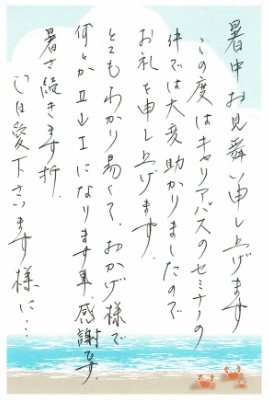 暑中お見舞い申し上げます
この度はキャリアパスのセミナーの
件では大変助かりましたので
お礼を申し上げます。
とてもわかり易くて、おかげ様で
何とかⅡ山Ⅰになります事、感謝です。
暑さ続きます折、
ご自愛下さいます様に…